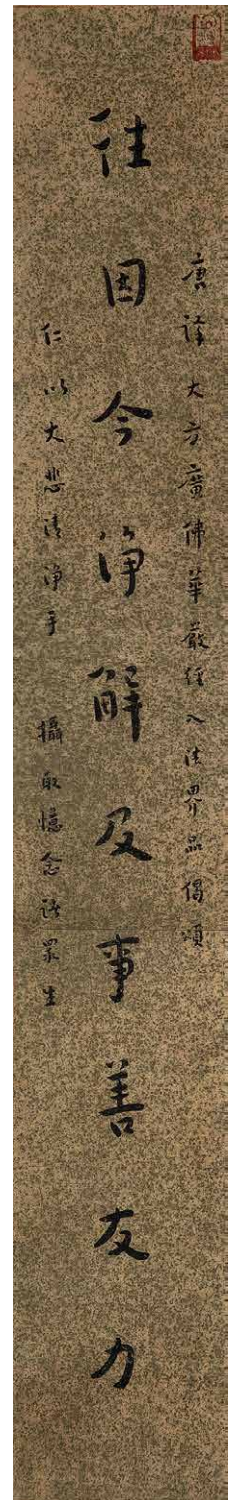 唐譯大方廣佛華嚴經入法界品偈頌
往因今淨解及事善友力
仁以大悲清淨手　攝取憶念諸眾生